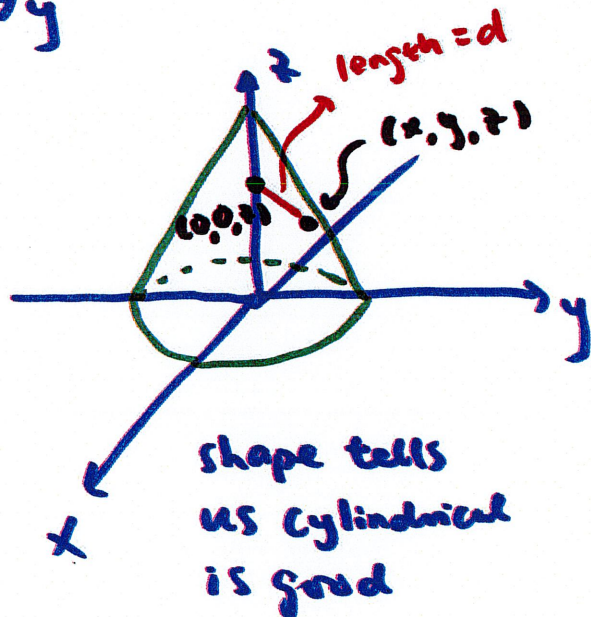 y
z
length = d
(x, y, z)
(0,0,z)
y
x
shape tells
us cylindrical
is good